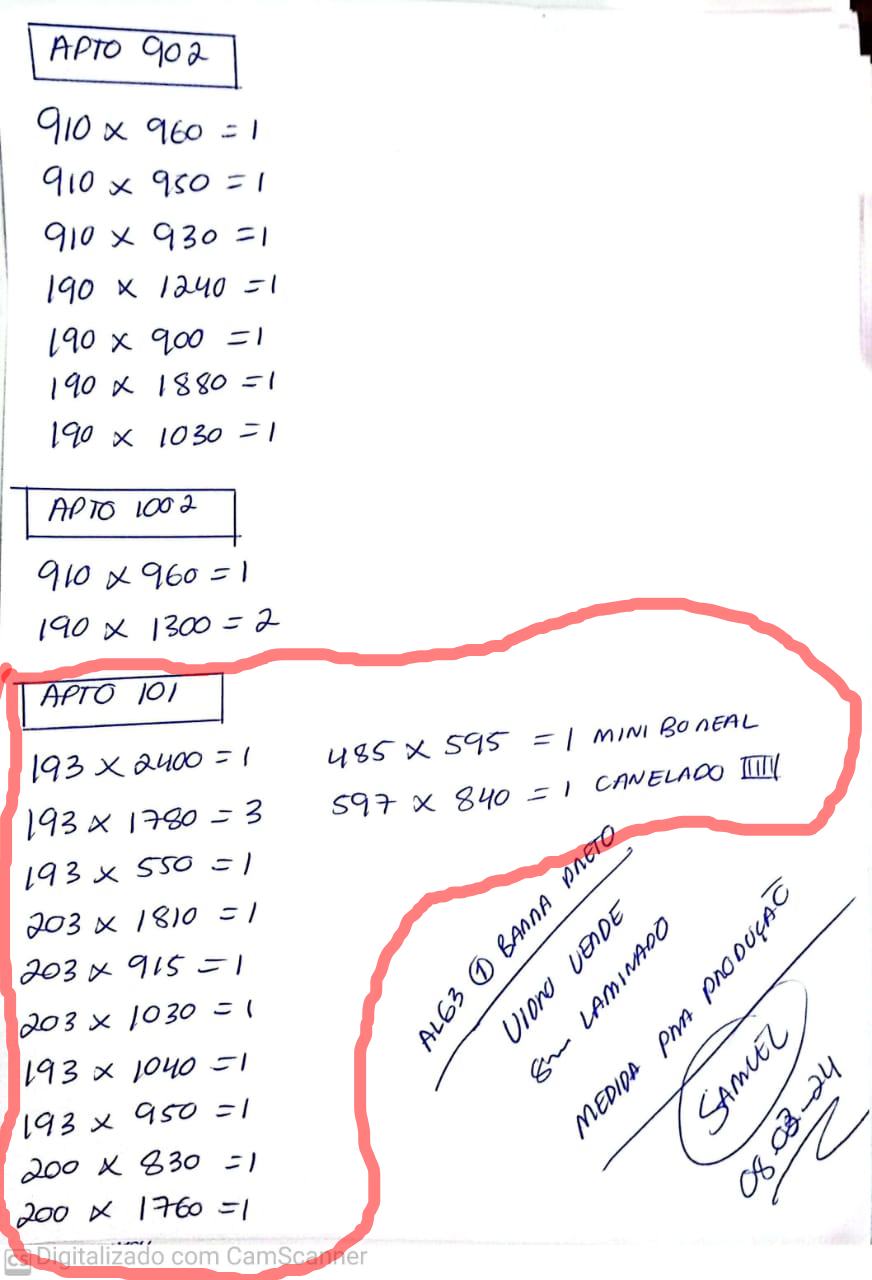 APTO 902
910 x 960 = 1
910 x 950 = 1
910 x 930 = 1
190 x 1240 = 1
190 x 900 = 1
190 x 1880 = 1
190 x 1030 = 1
APTO 1002
910 x 960 = 1
190 x 1300 = 2
APTO 101
193 x 2400 = 1
193 x 1780 = 3
193 x 550 = 1
203 x 1810 = 1
203 x 915 = 1
203 x 1030 = 1
193 x 1040 = 1
193 x 950 = 1
200 x 830 = 1
200 x 1760 = 1
485 x 595 = 1 MINI BOREAL
597 x 840 = 1 CANELADO
AL63 1 BARRA PRETO
VIDRO VERDE
8mm LAMINADO
MEDIDA PRA PRODUÇÃO
SAMUEL
08-03-24
CS Digitalizado com CamScanner